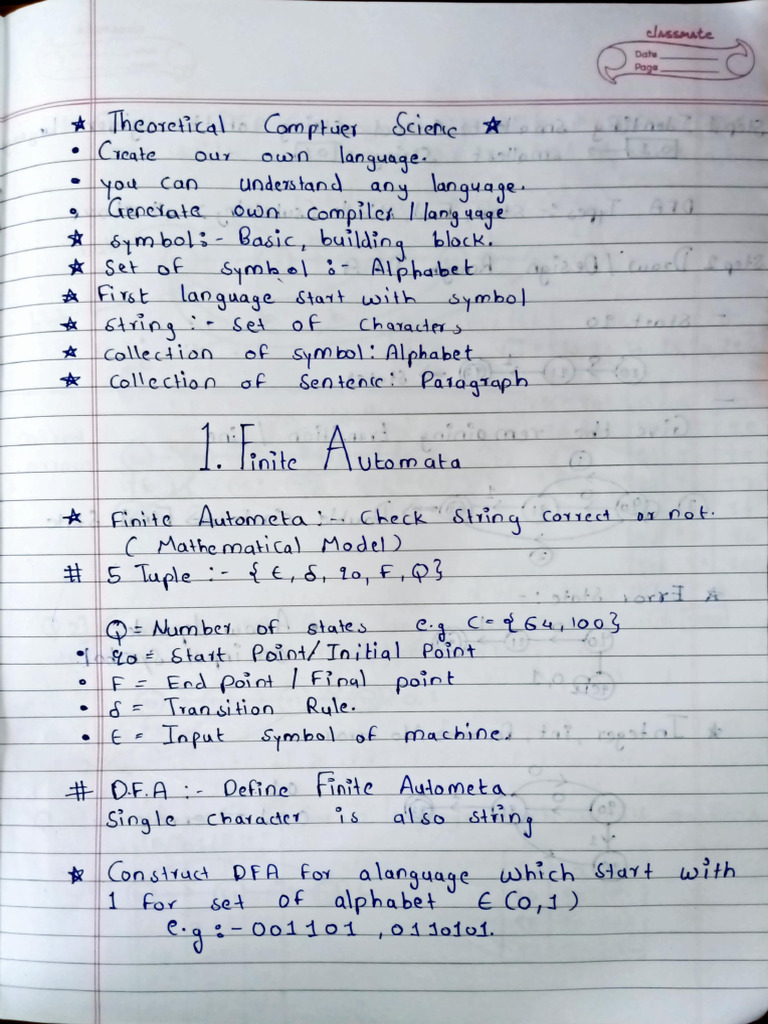 classmate
Date
Page
★ Theoretical Comptuer Science ★
• Create our own language.
• you can understand any language.
• Generate own compiler / language
★ symbol:- Basic, building block.
★ set of symbol :- Alphabet
★ First language start with symbol
★ string :- set of characters
★ collection of symbol: Alphabet
★ collection of sentenc: Paragraph
1. Finite Automata
★ Finite Autometa :- check string correct or not.
( Mathematical Model )
# 5 Tuple :- { ϵ, δ, q0, F, Q }
Q = Number of states e.g C = {64, 100}
• q0 = Start Point/Initial Point
• F = End point / Final point
• δ = Transition Rule.
• ϵ = Input symbol of machine.
# D.F.A :- Define Finite Autometa.
Single character is also string
★ Construct DFA for alanguage which start with
1 for set of alphabet ϵ (0,1)
e.g :- 001101 , 0110101.